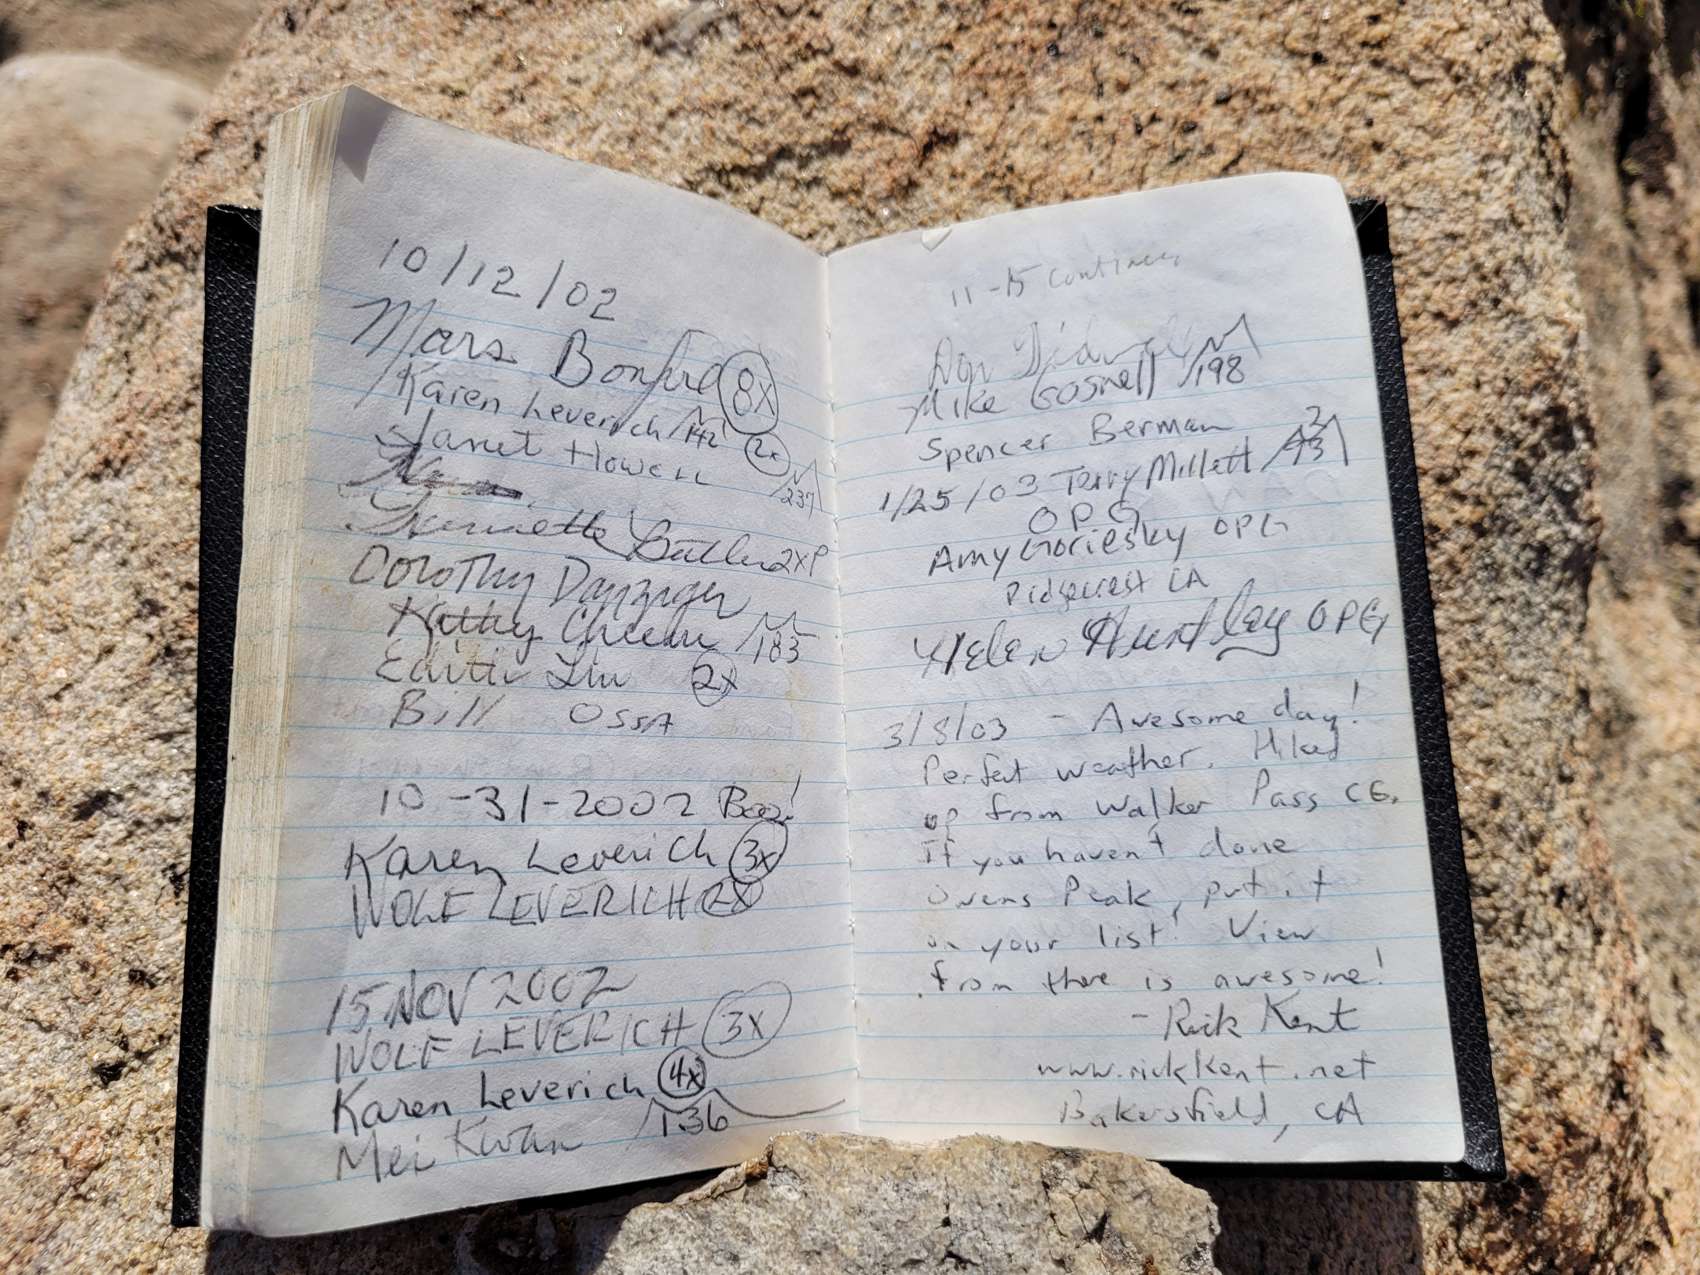 10/12/02
Mars Bonfire 8x
Karen Leverich 142 2x
Janet Howell 237
Henriette Butler 2xP
Dorothy Danziger
Kathy Cheever 183
Edith Liu 2x
Bill OSSA
10-31-2002 Boo!
Karen Leverich 3x
WOLF LEVERICH 2x
15 NOV 2002
WOLF LEVERICH 3x
Karen Leverich 4x
Mei Kwan 136
11-15 continues
Don
Mike Gosnell 198
Spencer Berman
1/25/03 Terry Millett
OPG
Amy Goriesky OPG
Ridgecrest CA
Helen Huntley OPG
3/8/03 - Awesome day!
Perfect weather. Hiked
up from Walker Pass CG.
If you haven't done
Owens Peak, put it
on your list! View
from there is awesome!
- Rick Kent
www.rickkent.net
Bakersfield, CA